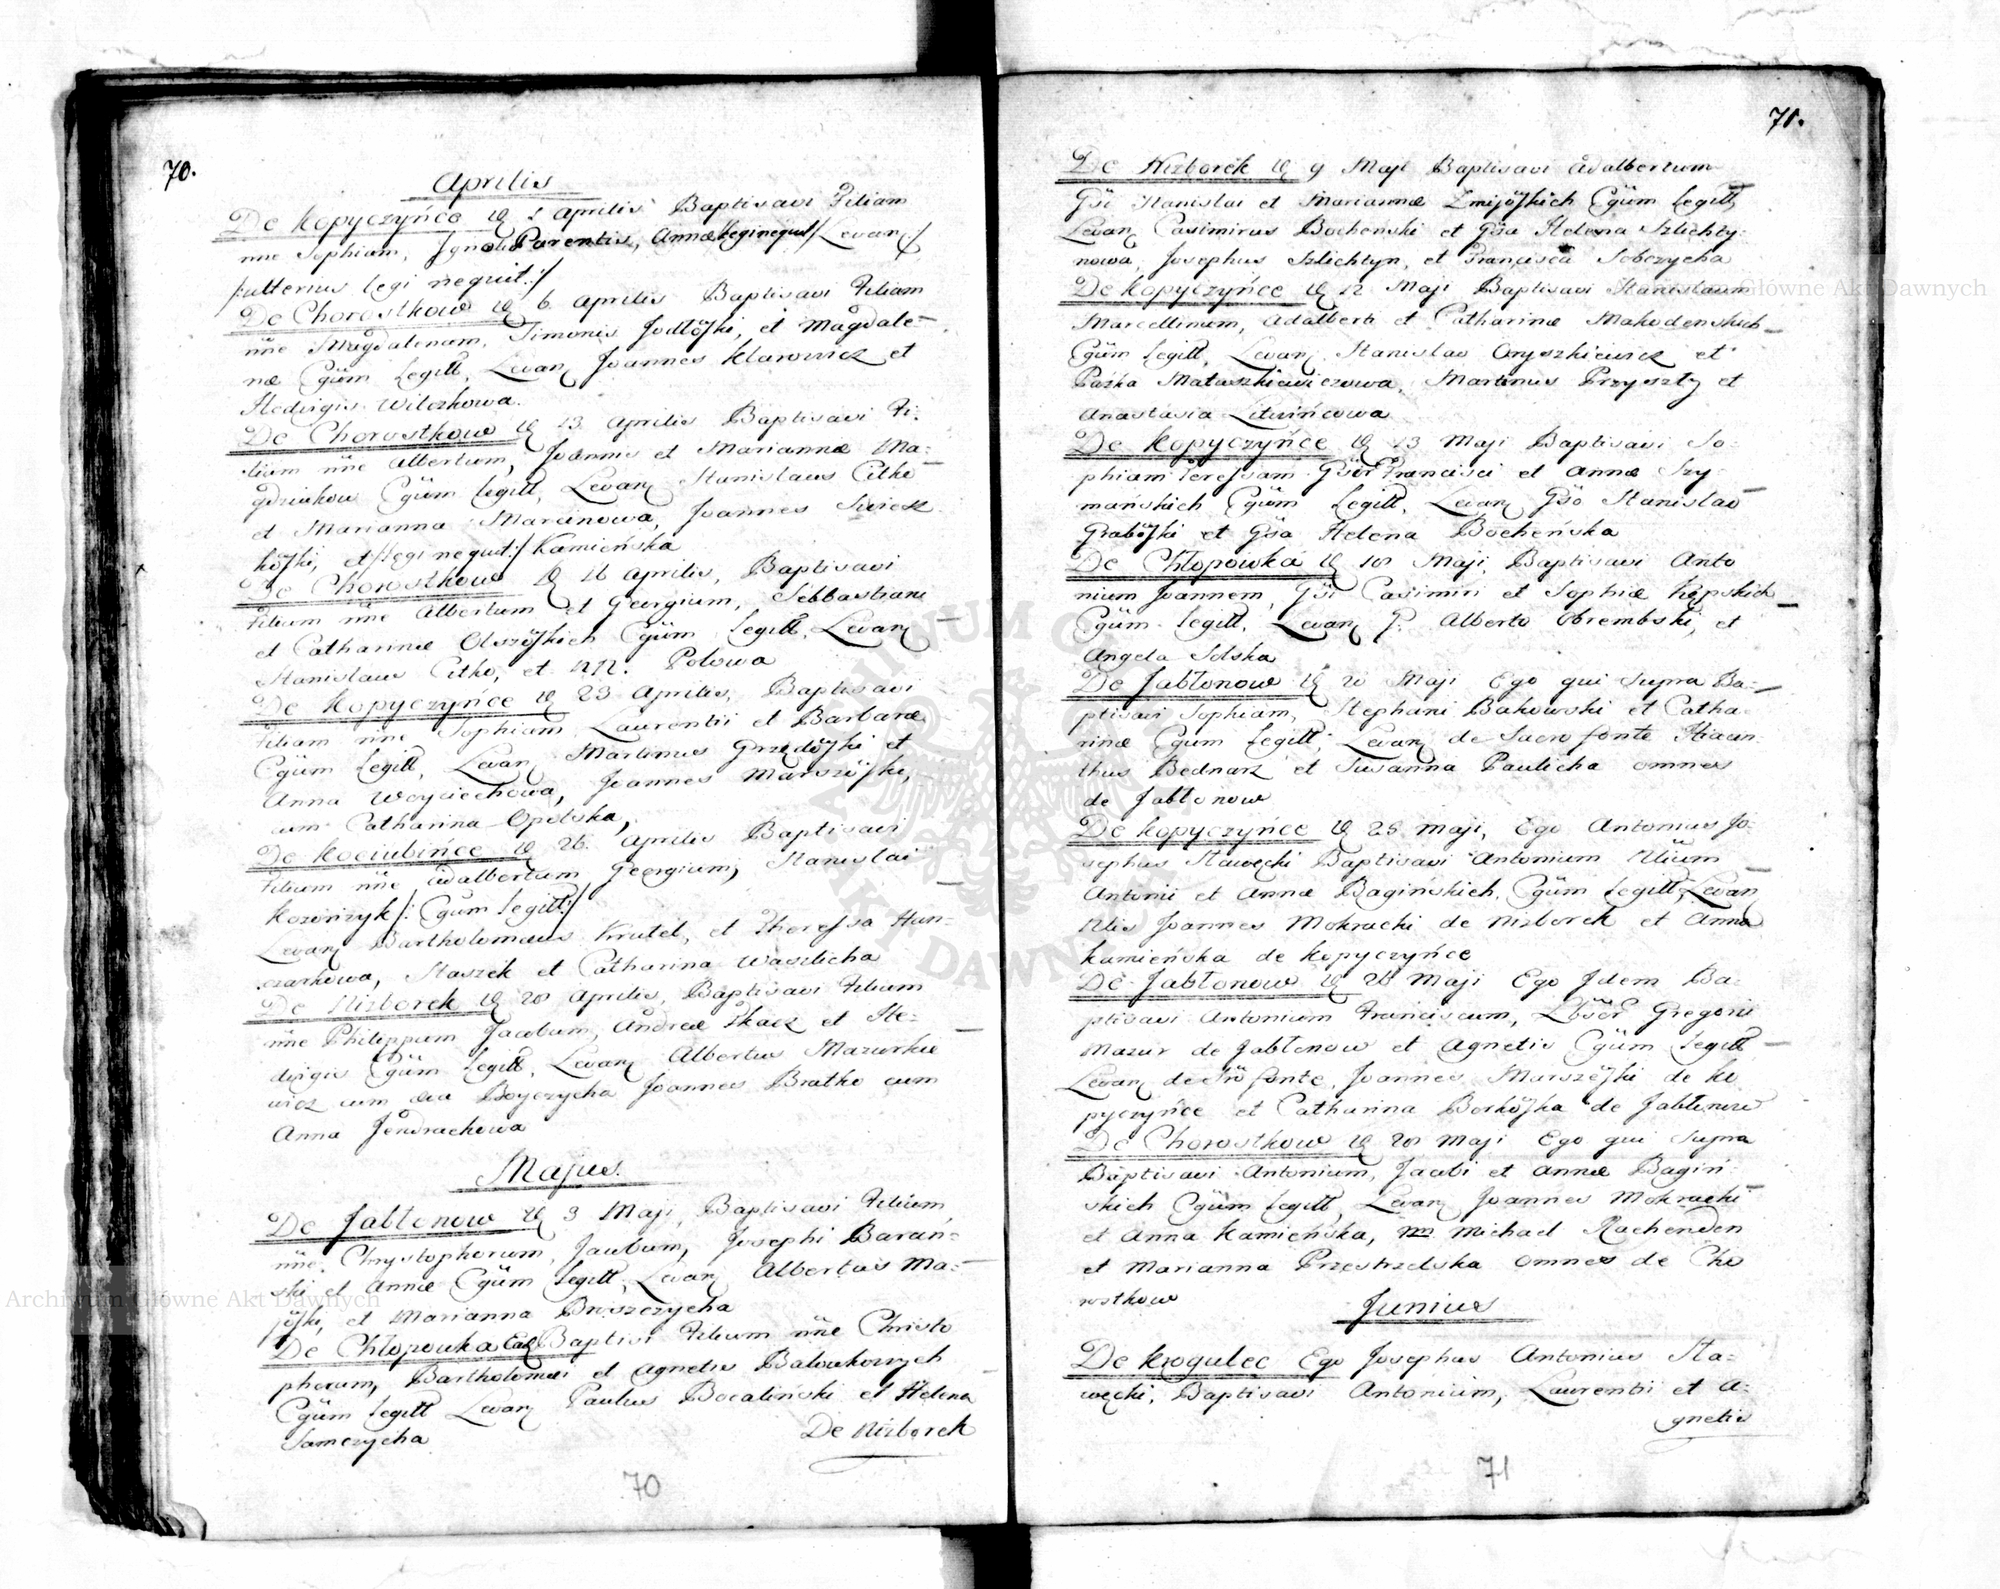 70.
Aprilis
De Kopyczyńce 1 Aprilis Baptisavi Filiam
nne Sophiam, Parentis, Annæ Levan
ulterius legi nequit:/
De Chorostkow 6 Aprilis Baptisavi Filiam
nñe Magdalenam, Timonis et Magdale-
næ Cgüm Legitt, Levan Joannes Klarowicz et
Hedvigis Wilczkowa.
De Chorostkow 13 Aprilis Baptisavi Fi-
lium nñe Albertum, Joannis et Mariannæ Ma-
gdziakow Cgüm Legitt, Levan Stanislaus Citko
et Marianna Marcinowa, Joannes
et /:legi nequit:/ Kamieńska
De Chorostkow 16 Aprilis, Baptisavi
Filium nñe Albertum et Georgium, Sebbastiani
et Catharinæ Olszöfkich Cgüm Legitt, Levan
Stanislaus Citko, et NN. Polowa
De Kopyczyńce 23 Aprilis, Baptisavi
Filiam nñe Sophiam Laurentii et Barbaræ
Cgüm Legitt, Levan Martinus Grzędöfki et
Anna Woyciechowa, Joannes Marszöfki,
cum Catharina Opolska,
De Kociubińce 26 Aprilis Baptisavi
Filium nñe Adalbertum Georgium, Stanislai
Kozończyk /: Cgüm Legitt:/
Levan Bartholomæus Krutel, et Theressa Hun-
czarkowa, Staszek et Catharina Waszlicha
De Nizborek 28 Aprilis, Baptisavi Filium
nñe Philippum Jacobum, Andreæ Tkacz et He-
dvigis Cgüm Legitt, Levan Albertus Mazurkie
wicz cum Boyczycha Joannes Bratko cum
Anna Jendrachowa
Majus.
De Jabłonow 3 Maji, Baptisavi Filium
nñe Chrystophorum, Jacobum, Josephi Barań-
ski et Annæ Cgüm Legitt, Levan Albertus Ma-
jöfki, et Marianna
De Chłopowka Baptisi Filium nñe Christo
phorum, Bartholomæi et Agnetis Balowkowych
Cgüm Legitt Levan Paulus Bocaliński et Helena
Samczycha
De Nizborek
70
71.
De Nizborek 9 Maji Baptisavi Adalbertum
Gsi Stanislai et Mariannæ Zmijöfkich Cgüm Legitt,
Levan Casimirus Bocheński et Gsa Helena Szlichty-
nowa, Josephus Szlichtyn, et Francisca Sobczycha
De Kopyczyńce 12 Maji Baptisavi Stanislaum
Marcellinum, Adalberti et Catharinæ Makodenskich
Cgüm Legitt, Levan Stanislao Oryszkiewicz et
Pazka Matuszkiewiczowa, Martinus Przyszły et
Anastasia Litwińcowa
De Kopyczyńce 13 Maji Baptisavi So-
phiam Teressam Gsor Francisci et Annæ Szy-
mańskich Cgüm Legitt, Levan Gso Stanislao
Graböfki et Gsa Helena Bocheńska
De Chłopowka 18 Maji, Baptisavi Anto
nium Joannem, Gsi Casimiri et Sophiæ Kępskich
Cgüm Legitt, Levan G. Alberto Obrembski, et
Angela Solska
De Jabłonow 20 Maji Ego qui supra Ba-
ptisavi Sophiam, Stephani Bakowski et Catha-
rinæ Cgüm Legitt, Levan de Sacro fonte Hiacin-
thus Bednarz et Susanna Paulicha omnes
de Jabłonow
De Kopyczyńce 25 Maji, Ego Antonius Jo-
sephus Stawęcki Baptisavi Antonium
Antonii et Annæ Bagińskich, Cgüm Legitt, Levan
Joannes Mokracki de Nizborek et Anna
Kamieńska de Kopyczyńce
De Jabłonow 28 Maji Ego Idem Ba-
ptisavi Antonium Franciscum, Gregorii
Mazur de Jabłonow et Agnetis Cgüm Legitt
Levan de fonte, Joannes Marszöfki de Ko
pyczyńce et Catharina Borköfka de Jabłonow
De Chorostkow 28 Maji Ego qui supra
Baptisavi Antonium, Jacobi et Annæ Bagiń-
skich Cgüm Legitt, Levan Joannes Mokracki
et Anna Kamieńska, Michael Rachenden
et Marianna Przestrzelska omnes de Cho
rostkow
Junius
De Krogulec Ego Josephus Antonius Sta-
węcki, Baptisavi Antonium, Laurentii et A-
gnetis
71
Archiwum Główne Akt Dawnych